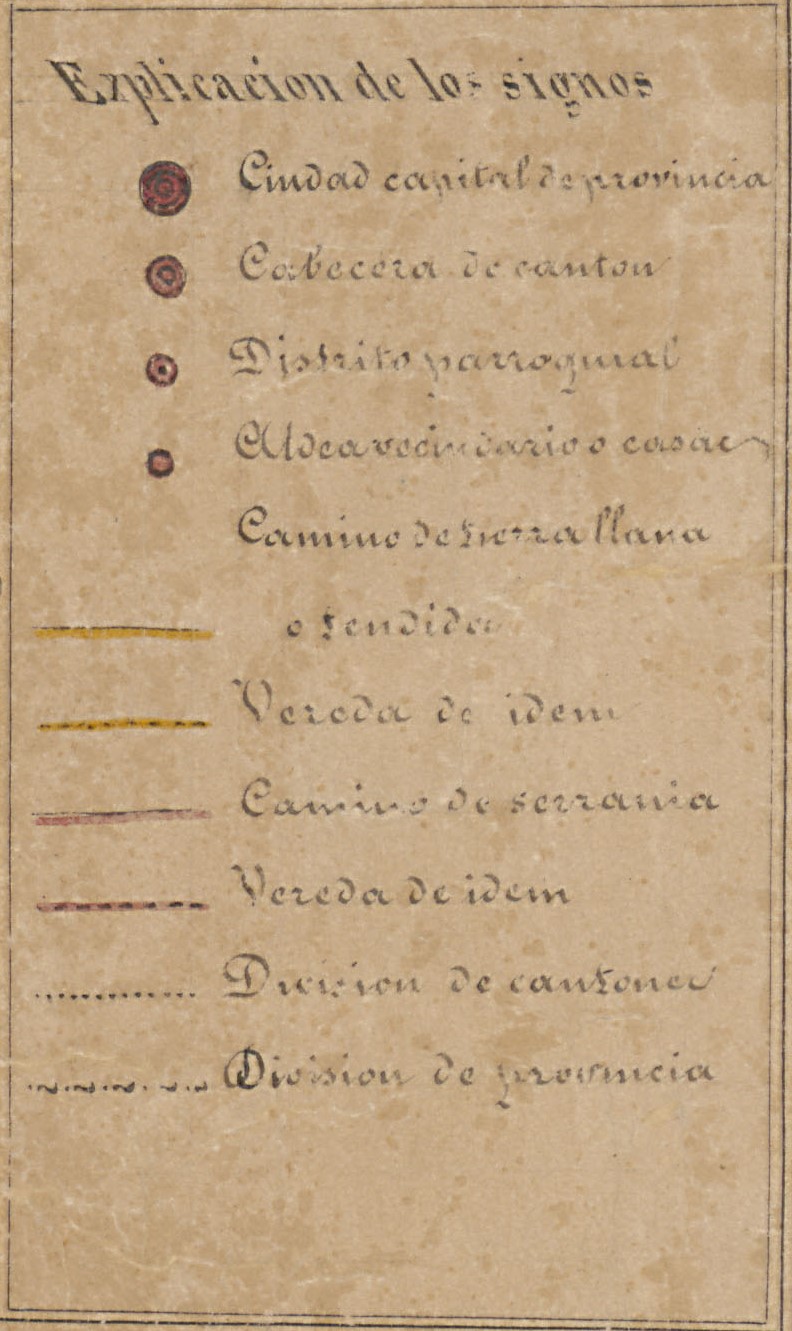 Explicacion de los signos
Ciudad capital de provincia
Cabecera de canton
Distrito parroquial
Aldea vecindario o
Camino de tierra llana
o tendida
Vereda de idem
Camino de serrania
Vereda de idem
Division de cantones
Division de provincia